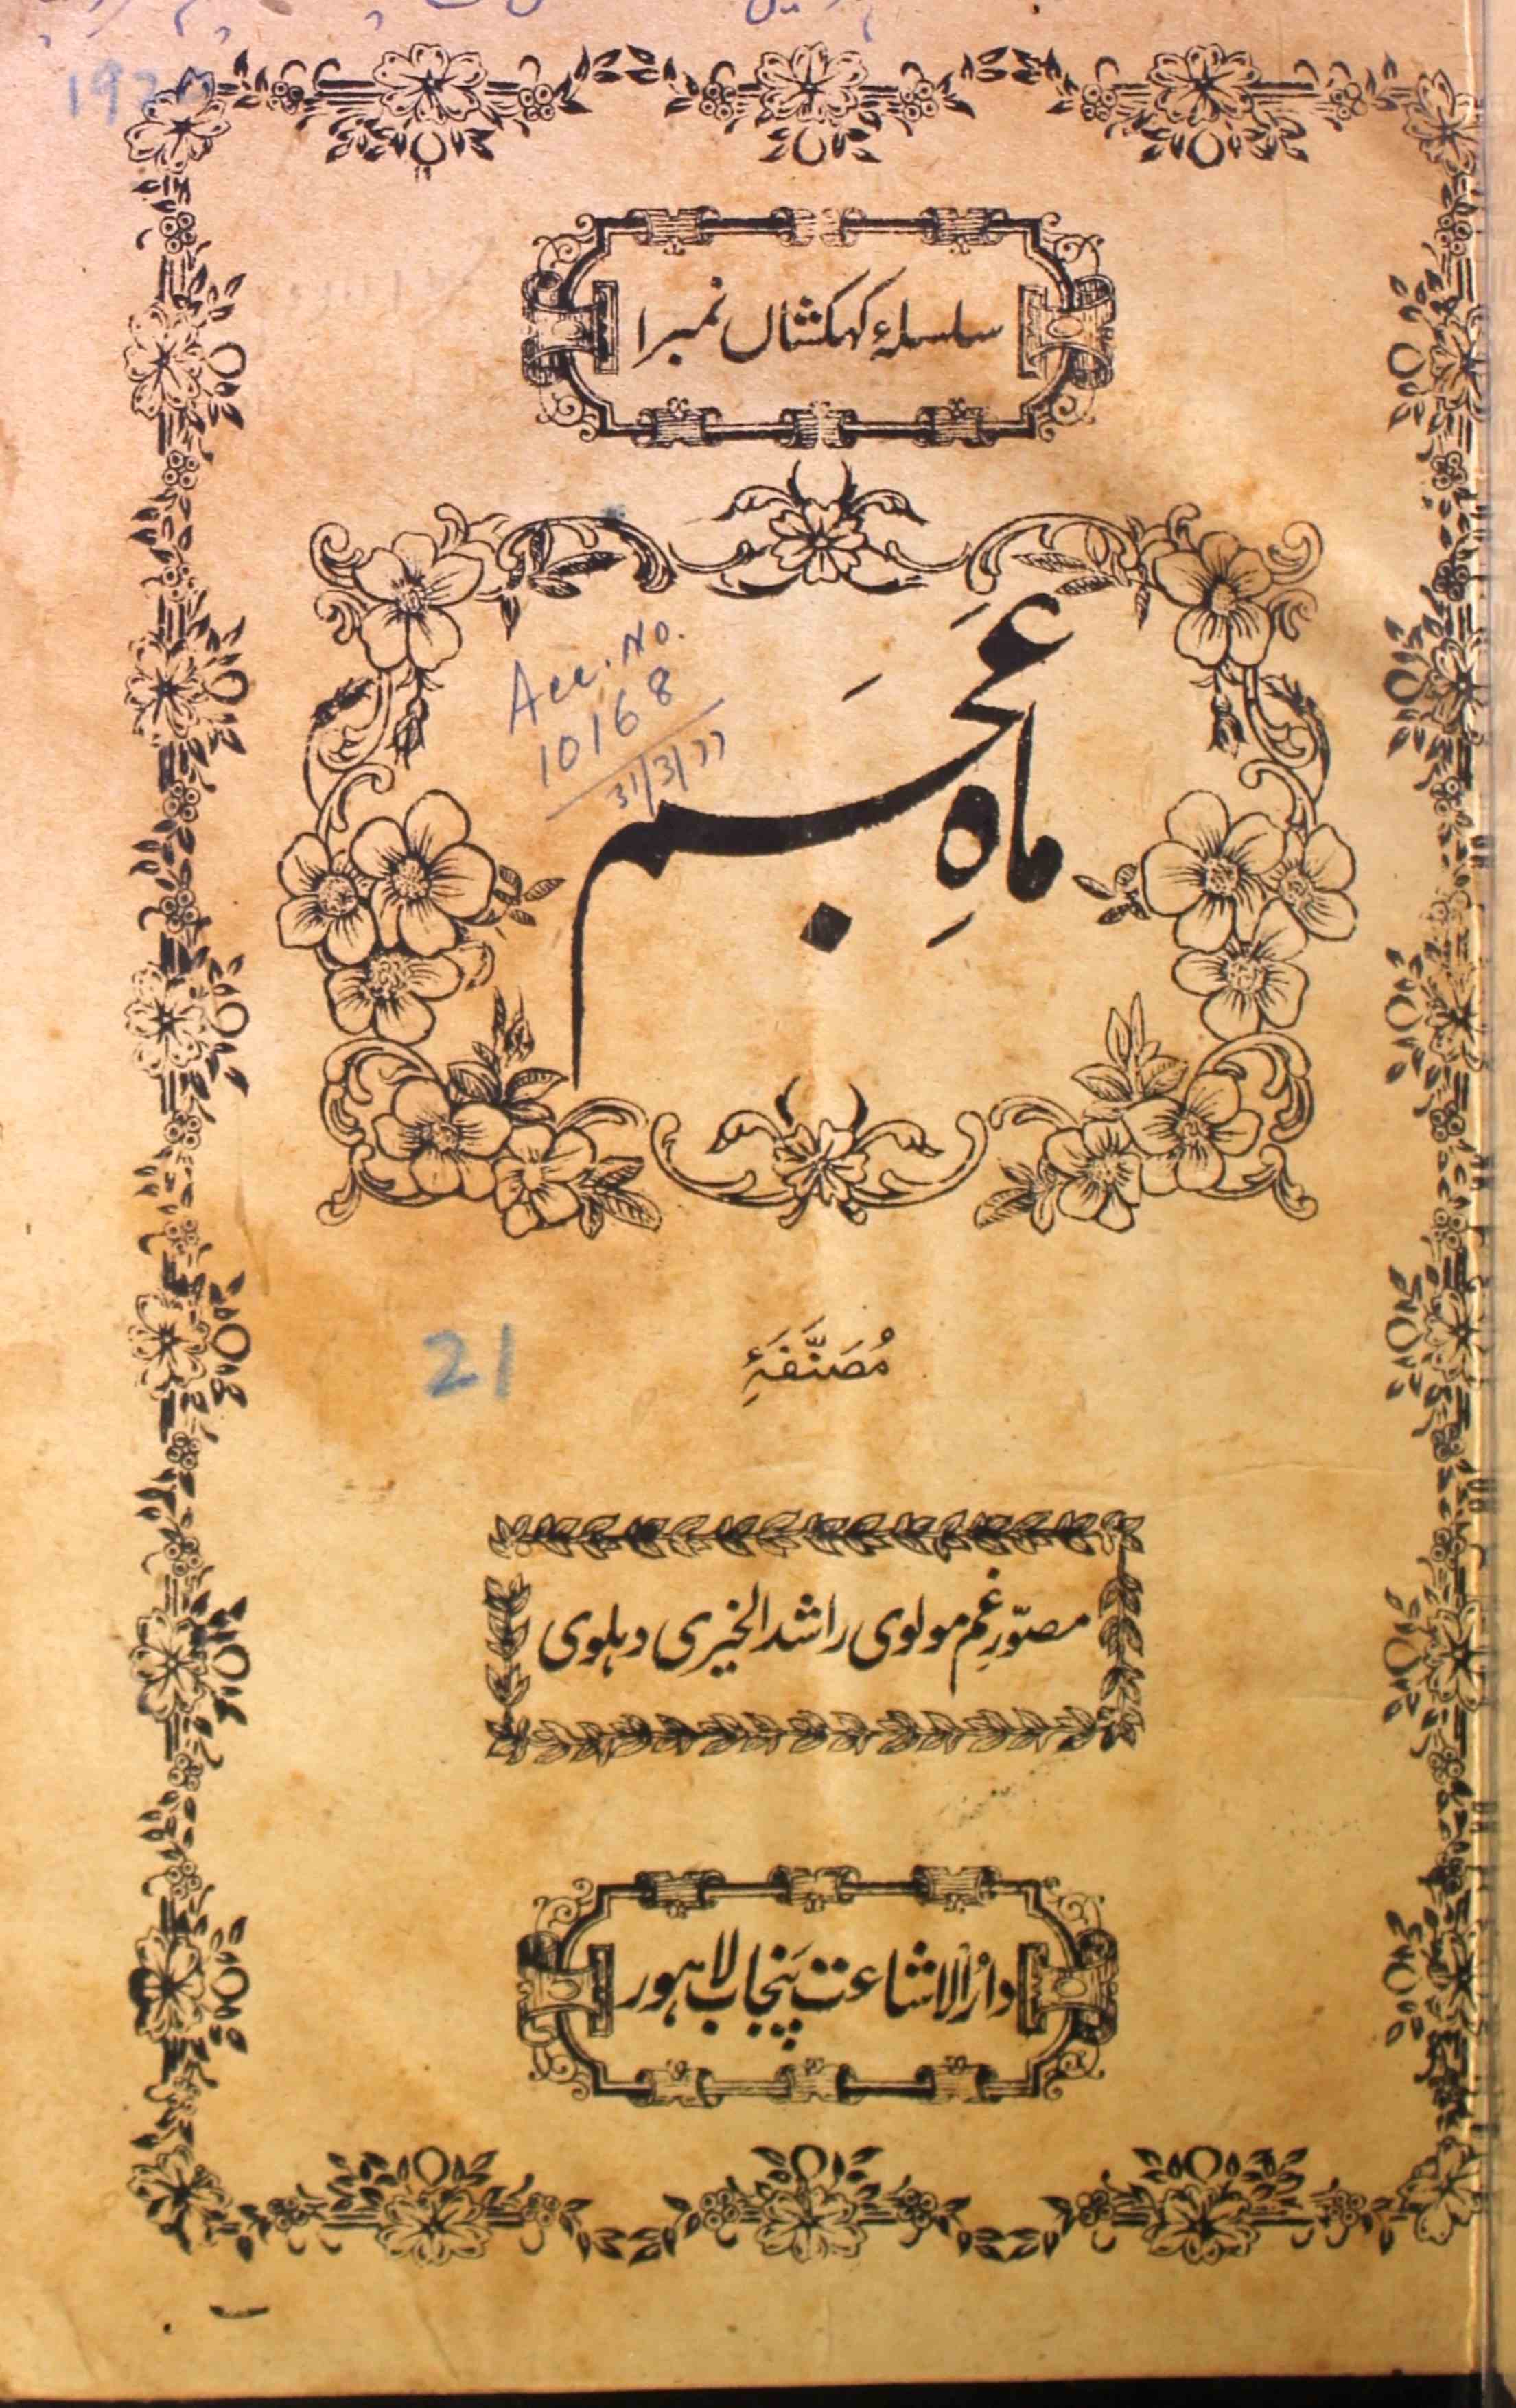 سلسلۂ کہکشاں نمبر ۱
ماہِ عَجَم
Acc. No.
10168
31/3/77
21
مُصَنَّفَۂِ
مصوّرِ غم مولوی راشد الخیری دہلوی
دارُالاشاعت پَنجاب لاہور